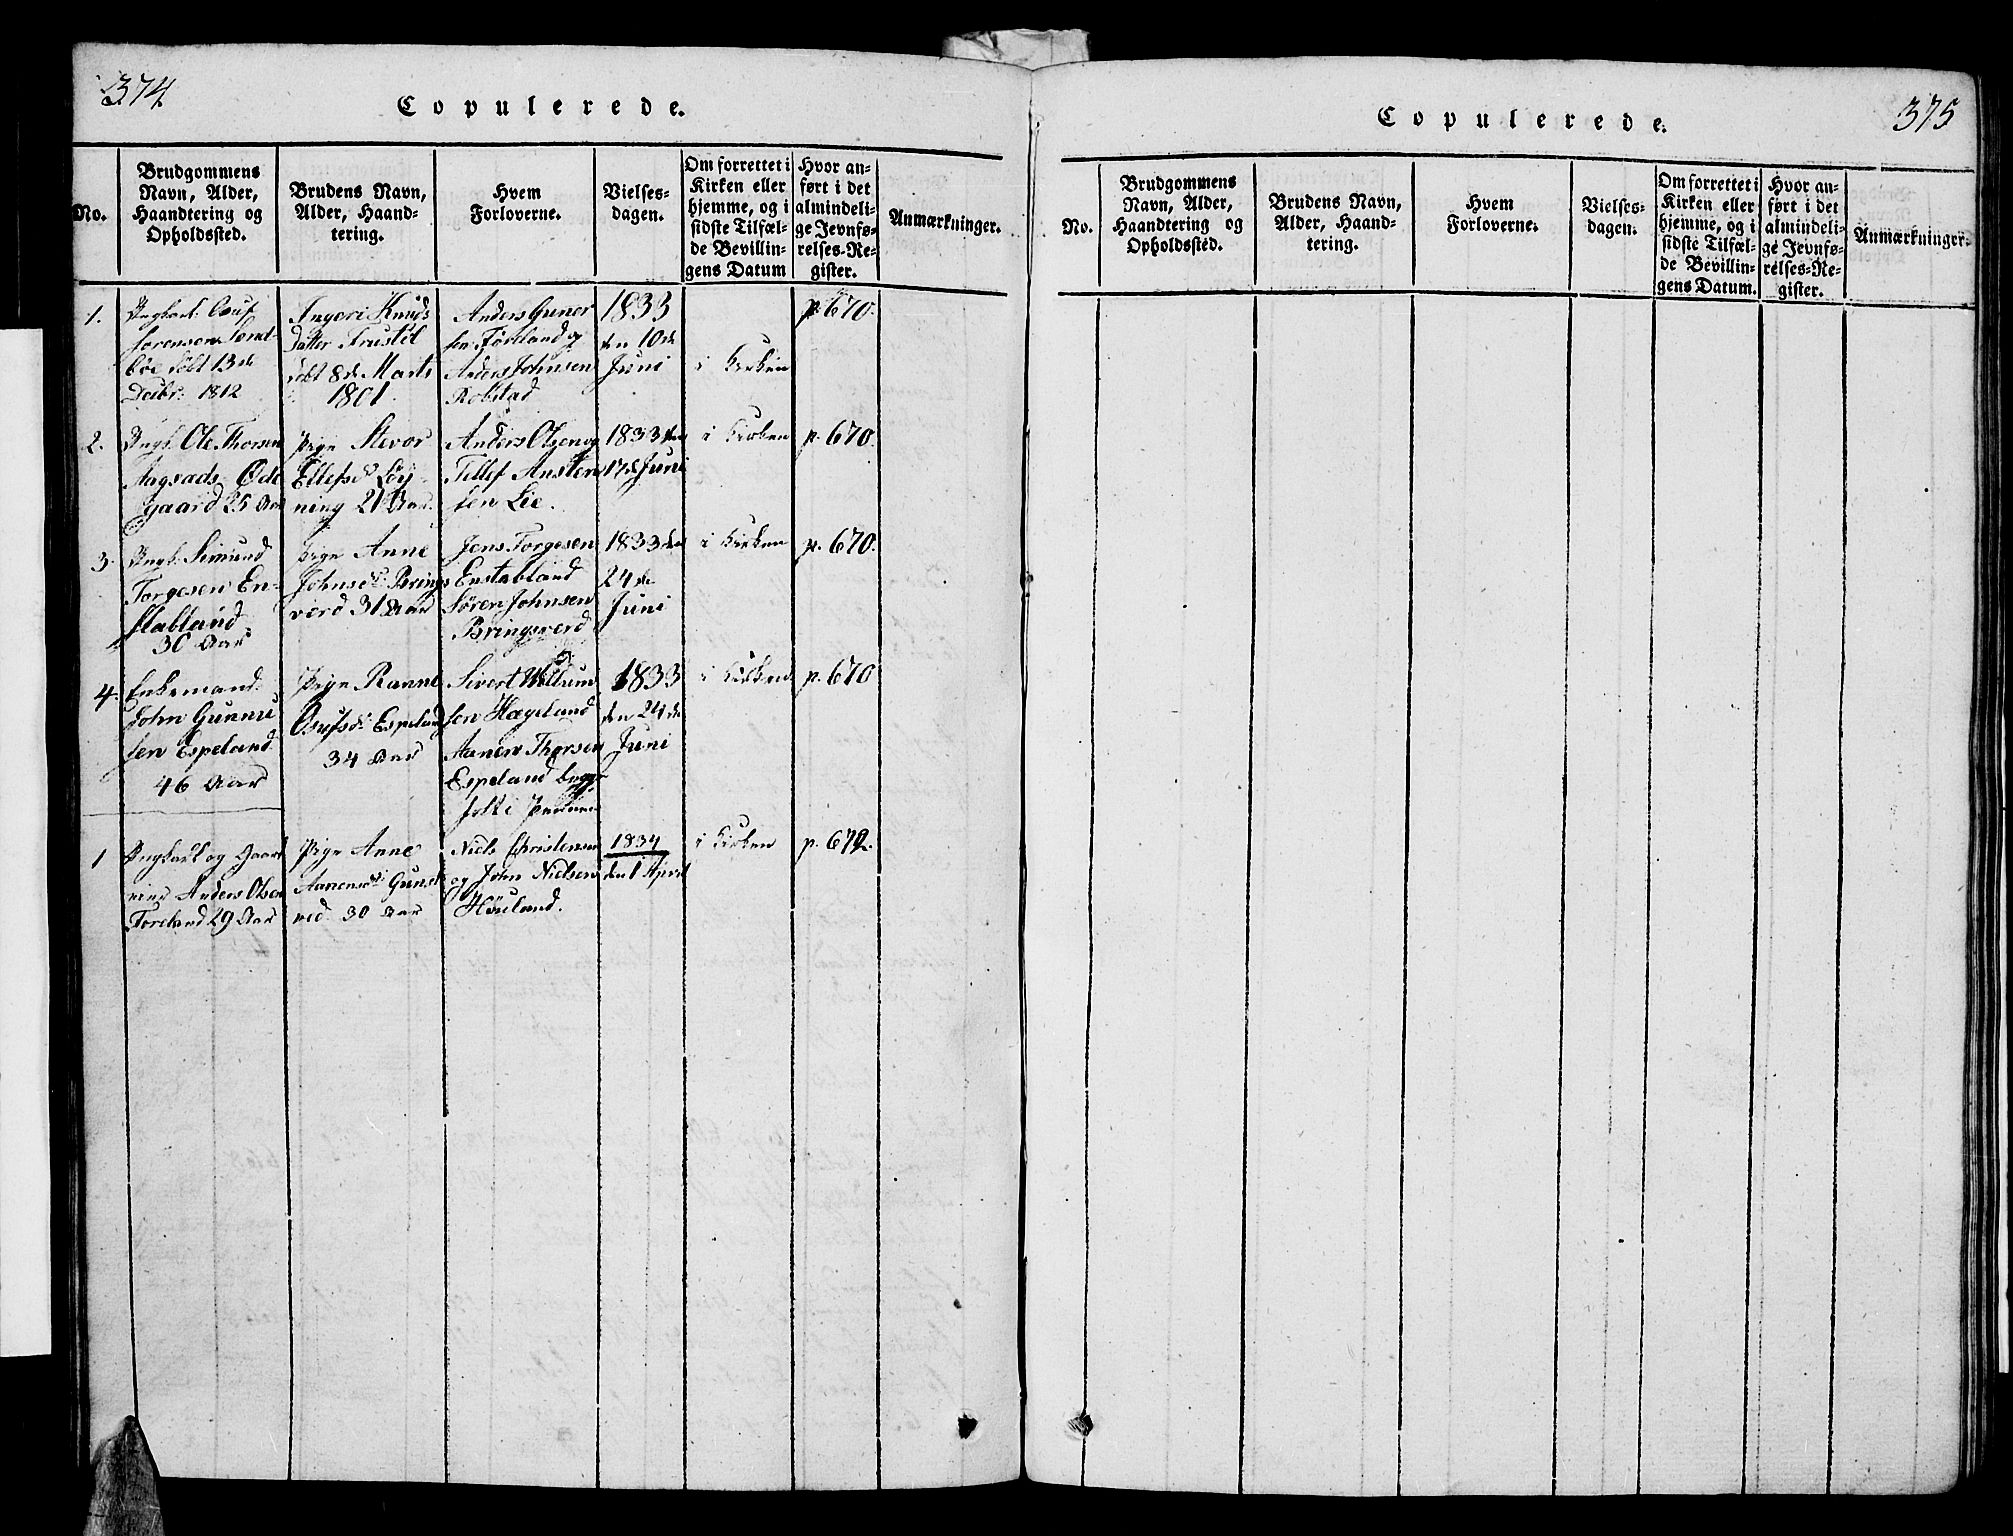 374
Copulerede.
No.
Brudgommens
Navn, Alder,
Haandtering og
Opholdssted.
Brudens Navn,
Alder, Haand-
tering.
Hvem
Forloverne.
Vielses-
dagen.
Om forrettet i
Kirken eller
hjemme, og i
sidste Tilfæl-
de Bevillin-
gens Datum
Hvor an-
ført i det
almindeli-
ge Jevnfø-
relses-Re-
gister.
Anmærkninger.
1.
Ungkarl
Sorensen
døbt 13de
Decbr. 1812
Ingeri Knuds
Datter Frustøl
døbt 8de Marts
1801.
Anders Guner
sen Føreland og
Anders Johnsen
Robstad
1833
den 10de
Juni
i Kirken
p. 670.
2.
Ungk. Ole Thorsen
Aagsads Øde
gaard 25 Aar
Pige Stevor
Ellefsd
ning 21 Aar.
Anders Olsen og
Tellef Ansten
sen Lie.
1833 den
17de Juni
i Kirken
p. 670.
3.
Ungk. Simund
Torgesen En-
stabland
30 Aar
Pige Anne
Johnsd. Brings
værd 31 Aar
Jens Torgesen
Enstabland
Søren Johnsen
Bringsværd
1833 den
24de
Juni
i Kirken
p. 670.
4.
Enkemand
John Gunnu
sen Espeland
46 Aar
Pige Ranne
Osufsd. Espeland
34 Aar
Sivert
sen Hægeland
Aanen Thorsen
Espeland begge
1833
den 24de
Juni
i Kirken
p. 670
1
Ungkarl og Gaard
mand Anders Olsen
Foreland 29 Aar
Pige Anne
Aanensd. Gunst
ved 30 Aar
Niels Christensen
og John Nielsen
Høiland.
1834
den 1 April
i Kirken
p. 672.
Copulerede.
375
No.
Brudgommens
Navn, Alder,
Haandtering og
Opholdssted.
Brudens Navn,
Alder, Haand-
tering.
Hvem
Forloverne.
Vielses-
dagen.
Om forrettet i
Kirken eller
hjemme, og i
sidste Tilfæl-
de Bevillin-
gens Datum.
Hvor an-
ført i det
almindeli-
ge Jevnfø-
relses-Re-
gister.
Anmærkninger.